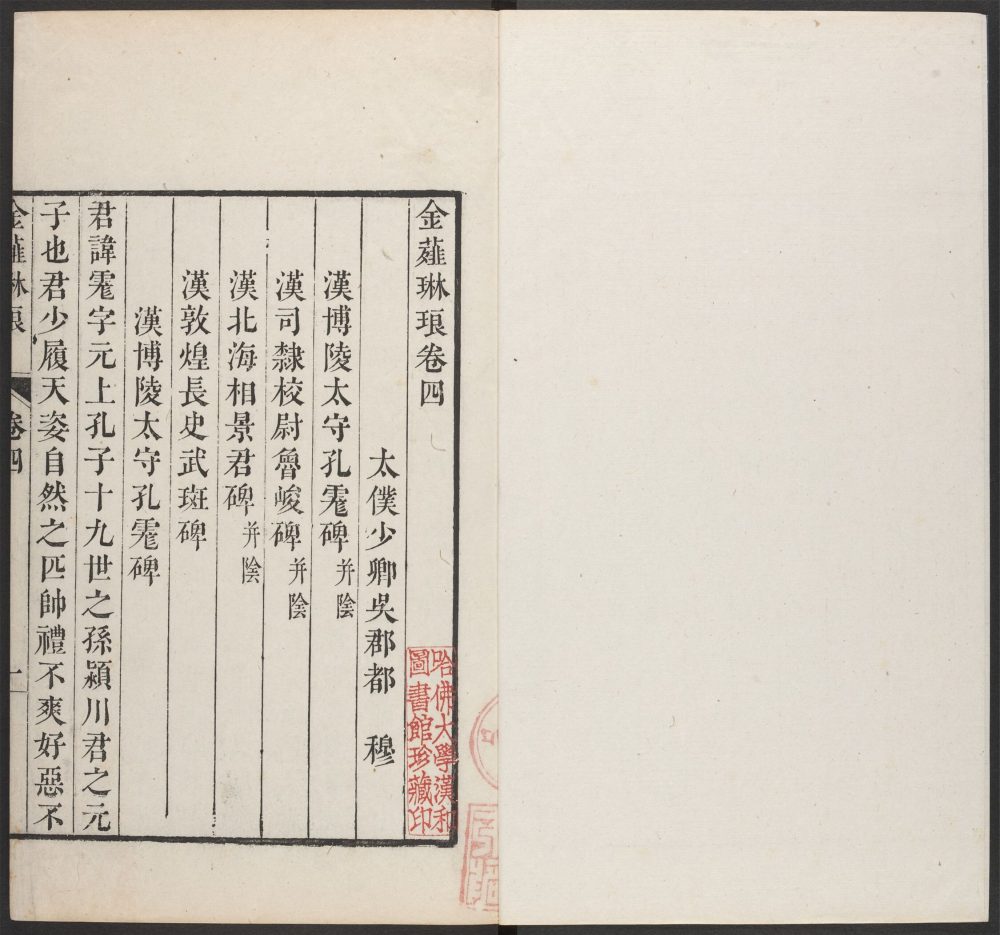 金薤琳琅卷四
太僕少卿吳郡都 穆
漢博陵太守孔霮碑并陰
漢司隸校尉魯峻碑并陰
漢北海相景君碑并陰
漢敦煌長史武斑碑
漢博陵太守孔霮碑
君諱霮字元上孔子十九世之孫潁川君之元
子也君少履天姿自然之正帥禮不爽好惡不
金薤琳琅 卷四 一
哈佛大學漢和
圖書館珍藏印